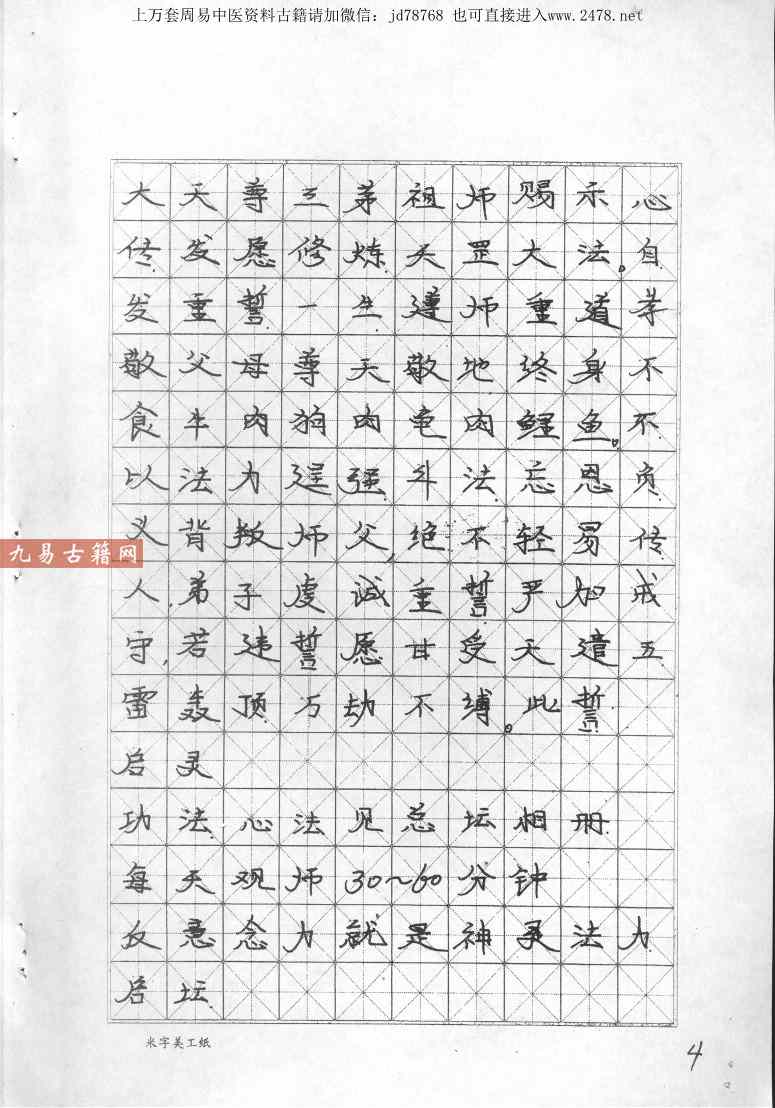 上万套周易中医资料古籍请加微信：jd78768 也可直接进入www.2478.net
大天尊三茅祖师赐示心
传发愿修炼天罡大法。自
发重誓一生遵师重道孝
敬父母尊天敬地终身不
食牛肉狗肉龟肉鲤鱼。不
以法力逞强斗法忘恩负
义背叛师父，绝不轻易传
九易古籍网
人，弟子虔诚重誓严加戒
守，若违誓愿甘受天谴五
雷轰顶万劫不缚。此誓
启灵
功法心法见总坛相册
每天观师30～60分钟
反意念力就是神灵法力
启坛
米字美工纸
4